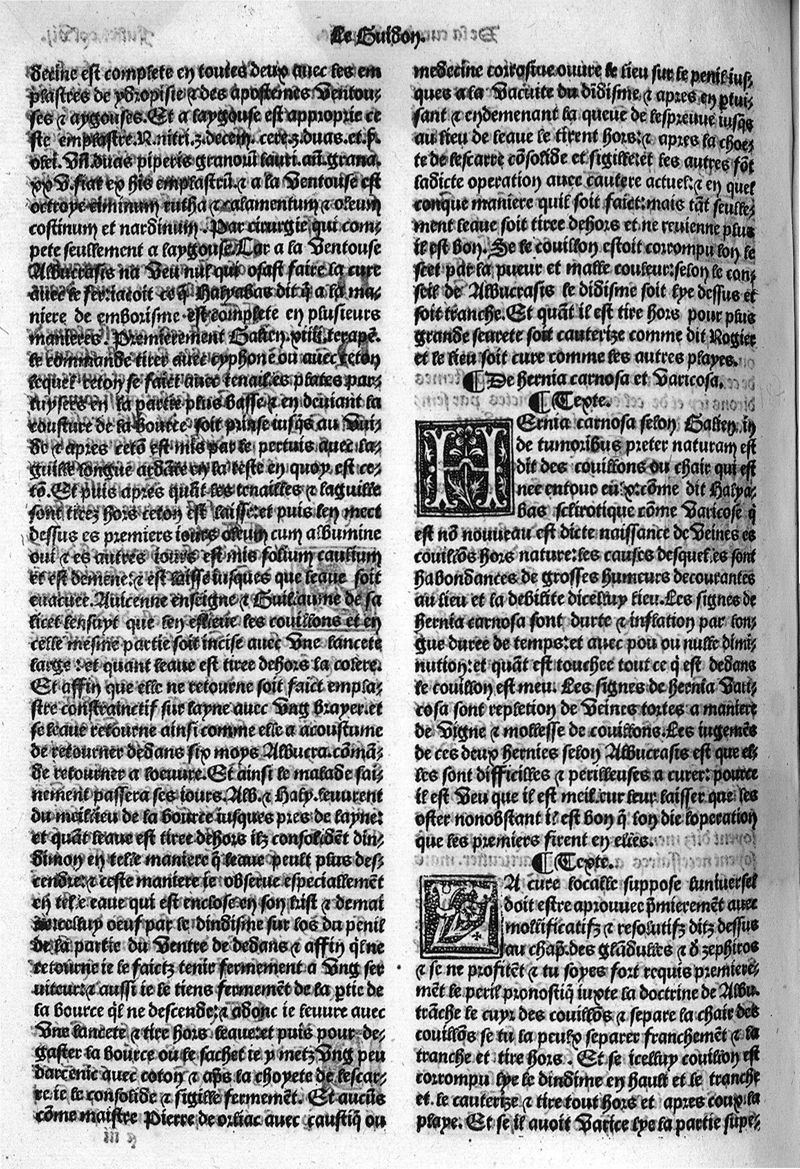 Le Guidon.
decine est complete en toutes deux auec les em
plastres de ydropisie ⁊ des apostemes Ventou⸗
ses ⁊ aygouses. Et a laygouse est approprie ce
ste emplastre. R. nitri. ʒ. decem. cere. ʒ. duas. et
olei. duas piperis granorū lauri. añ. grana.
xx V. fiat ex his emplastrū. ⁊ a la Ventouse est
octroye ciminum rutha ⁊ calamentum ⁊ oleum
costinum et nardinum. Par cirurgie qui com⸗
pete seullement a laygouse. Car a la Ventouse
Albucrasis na Veu nul qui osast faire la cure
auec le ferriatoit ce q̄ Halyabas dit q̄ a la ma⸗
niere de emborisme est complete en plusieurs
manieres. Premierement Galien. xiiii. terapē.
le commande tirer auec cyphone ou auec ceton
lequel ceton se faict auec tenailles plates par⸗
tuysees en la partie plus basse ⁊ en deuiant la
cousture de la bource soit prinse iusqs au Vui⸗
de ⁊ apres cetō est mis par le pertuis auec la⸗
guille longue ardāte en la teste en quoy est ce⸗
tō. Et puis apres quāt les tenailles ⁊ laguille
sont tirez hors ceton est laisse: et puis len mect
dessus es premiers iours oleum cum albumine
oui ⁊ es autres iours est mis folium caulium
et est demene: ⁊ est laisse iusques que leaue soit
euacuee. Auicenne enseigne ⁊ Guillaume de sa
licet lensuyt que len eslieue les couillons et en
celle mesme partie soit incise auec Vne lancete
large: et quant leaue est tiree dehors la colere.
Et affin que elle ne retourne soit faict empla⸗
stre constrainctif sur layne auec Vng brayer. et
se leaue retourne ainsi comme elle a acoustume
de retourner dedans six moys Albucra. cōmā⸗
de retourner a loeuure. Et ainsi le malade sai⸗
nement passera ses iours. Alb. ⁊ Haly. leuurent
du meilieu de la bource iusques pres de layne:
et quāt leaue est tiree dehors ilz consolidēt din⸗
dimon en telle maniere q̄ leaue peult plus des⸗
cendre: ⁊ ceste maniere ie obserue especiallemēt
en telle eaue qui est enclose en son kist ⁊ demai
ne celluy oeuf par le dindisme sur los du penil
de la partie du Ventre de dedans ⁊ affin ql ne
retourne ie le faictz tenir fermement a Vng ser
uiteur: ⁊ aussi ie le tiens fermemēt de la ptie de
la bource ql ne descende: ⁊ adonc ie leuure auec
Vne lancete ⁊ tire hors leaue: et puis pour de⸗
gaster la bource ou le sachet ie y metz Vng peu
darcenic auec coton ⁊ aps la choyete de lescar⸗
re ie le consolide ⁊ sigille fermemēt. Et aucūs
cōme maistre Pierre de orliac auec caustiq̄ ou
medecine corrosiue ouure le lieu sur le penil ius⸗
ques a la Vacuite du didisme ⁊ apres en pui⸗
sant ⁊ endemenant la queue de lespreuue iusqs
au lieu de leaue le tirent hors: ⁊ apres la choe⸗
te de lescarre cōsolide et sigillerēt les autres fōt
ladicte operation auec cautere actuel: ⁊ en quel
conque maniere quil soit faict: mais tāt seulle⸗
ment leaue soit tiree dehors et ne reuienne plus
il est bon. Se le couillon estoit corrompu lon le
scet par la pueur et malle couleur: selon le con⸗
seil de Albucrasis le didisme soit lye dessus et
soit tranche. Et quāt il est tire hors pour plus
grande seurete soit cauterize comme dit Rogier
et le lieu soit cure comme les autres playes.
¶ De hernia carnosa et Varicosa.
¶ Texte.
HErnia carnosa selon Galien. in
de tumoribus preter naturam est
dit des couillons ou chair qui est
nee entour eux: cōme dit Halya⸗
bas sclirotique cōme Varicose q̄
est nō nouueau est dicte naissance de Veines es
couillōs hors nature: les causes desquelles sont
habondances de grosses humeurs decourantes
au lieu et la debilite dicelluy lieu. Les signes de
hernia carnosa sont durte ⁊ inflation par lon⸗
gue duree de temps: et auec pou ou nulle dimi⸗
nution: et quāt est touchee tout ce q̄ est dedans
le couillon est meu. Les signes de hernia Vari⸗
cosa sont repletion de Veines tortes a maniere
de Vigne ⁊ mollesse de couillons. Les iugemēs
de ces deux hernies selon Albucrasis est que el⸗
les sont difficilles ⁊ perilleuses a curer: pource
il est Veu que il est meilleur leur laisser que les
oster nonobstant il est bon q̄ lon die loperation
que les premiers firent en elles.
¶ Texte.
LA cure localle suppose luniuersel
doit estre aprouuee p̄mieremēt auec
mollificatifz ⁊ resolutifz ditz dessus
au chap̄. des glādulles ⁊ d zephiros
⁊ se ne profitēt ⁊ tu soyes fort requis premiere⸗
mēt le peril pronostiq̄ iuxte la doctrine de Albu.
trāche le cuyr des couillōs ⁊ separe la chair des
couillōs se tu la peulx separer franchemēt ⁊ la
tranche et tire hors. Et se icelluy couillon est
corrompu lye le dindime en hault et le tranche
et le cauterize ⁊ tire tout hors et apres coup. la
playe. Et se il auoit Varice lye la partie supe⸗